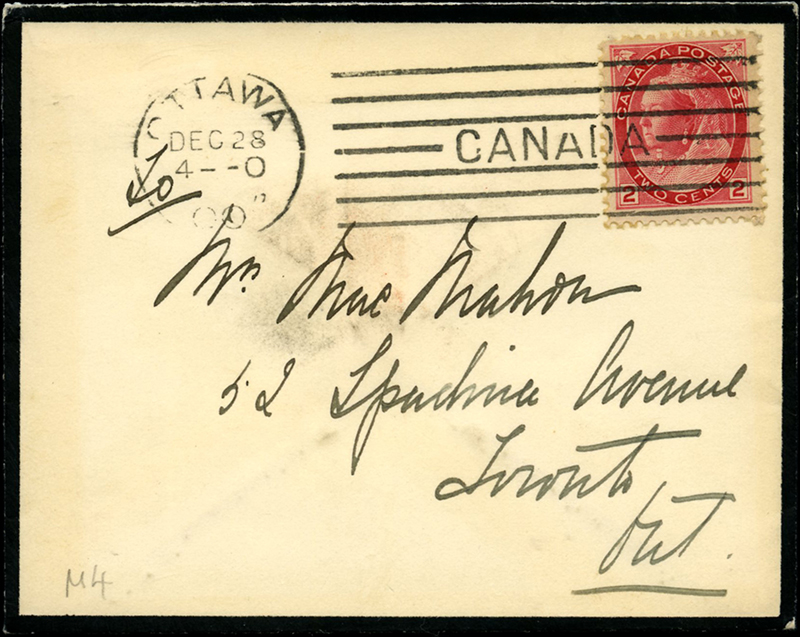 OTTAWA
DEC 28
4--0
00
CANADA
CANADA POSTAGE
2 TWO CENTS 2
To
Mrs Mac Mahon
52 Spadina Avenue
Toronto
Ont.
M4